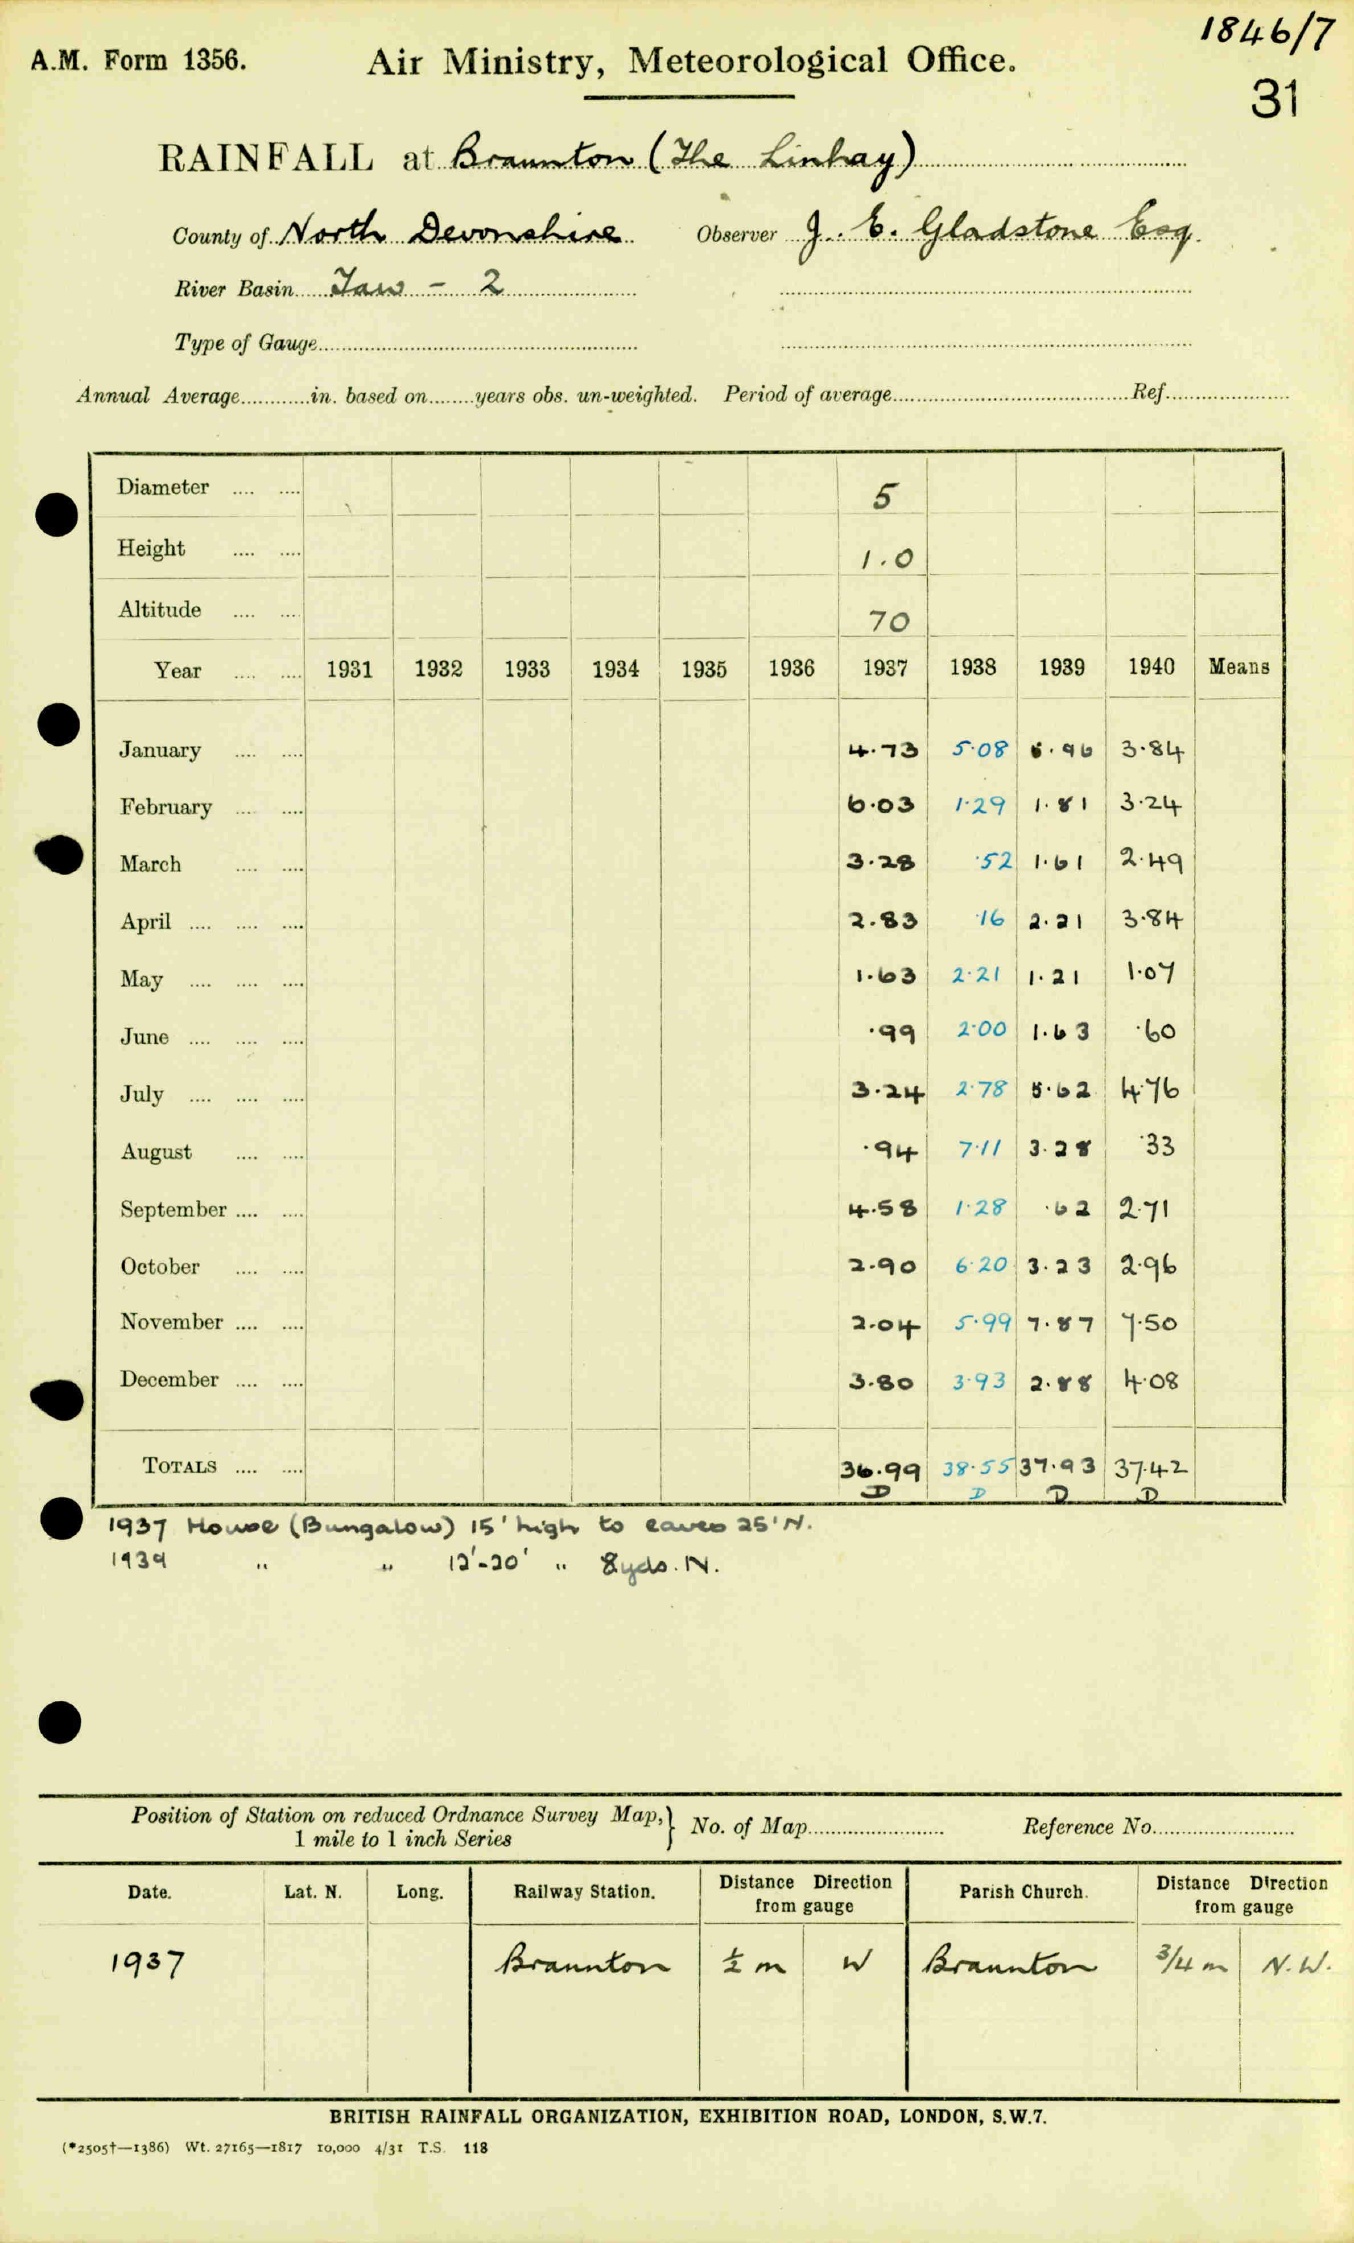 1846/7
A.M. Form 1356. Air Ministry, Meteorological Office.
31
RAINFALL at Braunton (The Linhay)
County of North Devonshire Observer J. E. Gladstone Esq.
River Basin Taw - 2
Type of Gauge
Annual Average in. based on years obs. un-weighted. Period of average Ref.
Diameter 5
Height 1.0
Altitude 70
Year 1931 1932 1933 1934 1935 1936 1937 1938 1939 1940 Means
January 4.73 5.08 5.96 3.84
February 6.03 1.29 1.81 3.24
March 3.28 .52 1.61 2.49
April 2.83 .16 2.21 3.84
May 1.63 2.21 1.21 1.07
June .99 2.00 1.63 .60
July 3.24 2.78 5.62 4.76
August .94 7.11 3.28 .33
September 4.58 1.28 .62 2.71
October 2.90 6.20 3.23 2.96
November 2.04 5.99 7.87 7.50
December 3.80 3.93 2.88 4.08
TOTALS 36.99 38.55 37.93 37.42
D D D D
1937 House (Bungalow) 15' high to eaves 25' N.
1939 " " 12'-20' " 8yds. N.
Position of Station on reduced Ordnance Survey Map, } No. of Map Reference No.
1 mile to 1 inch Series
Date. Lat. N. Long. Railway Station. Distance Direction from gauge Parish Church. Distance Direction from gauge
1937 Braunton ½ m W Braunton 3/4 m N.W.
BRITISH RAINFALL ORGANIZATION, EXHIBITION ROAD, LONDON, S.W.7.
(*2505†—1386) Wt. 27165—1817 10,000 4/31 T.S. 118